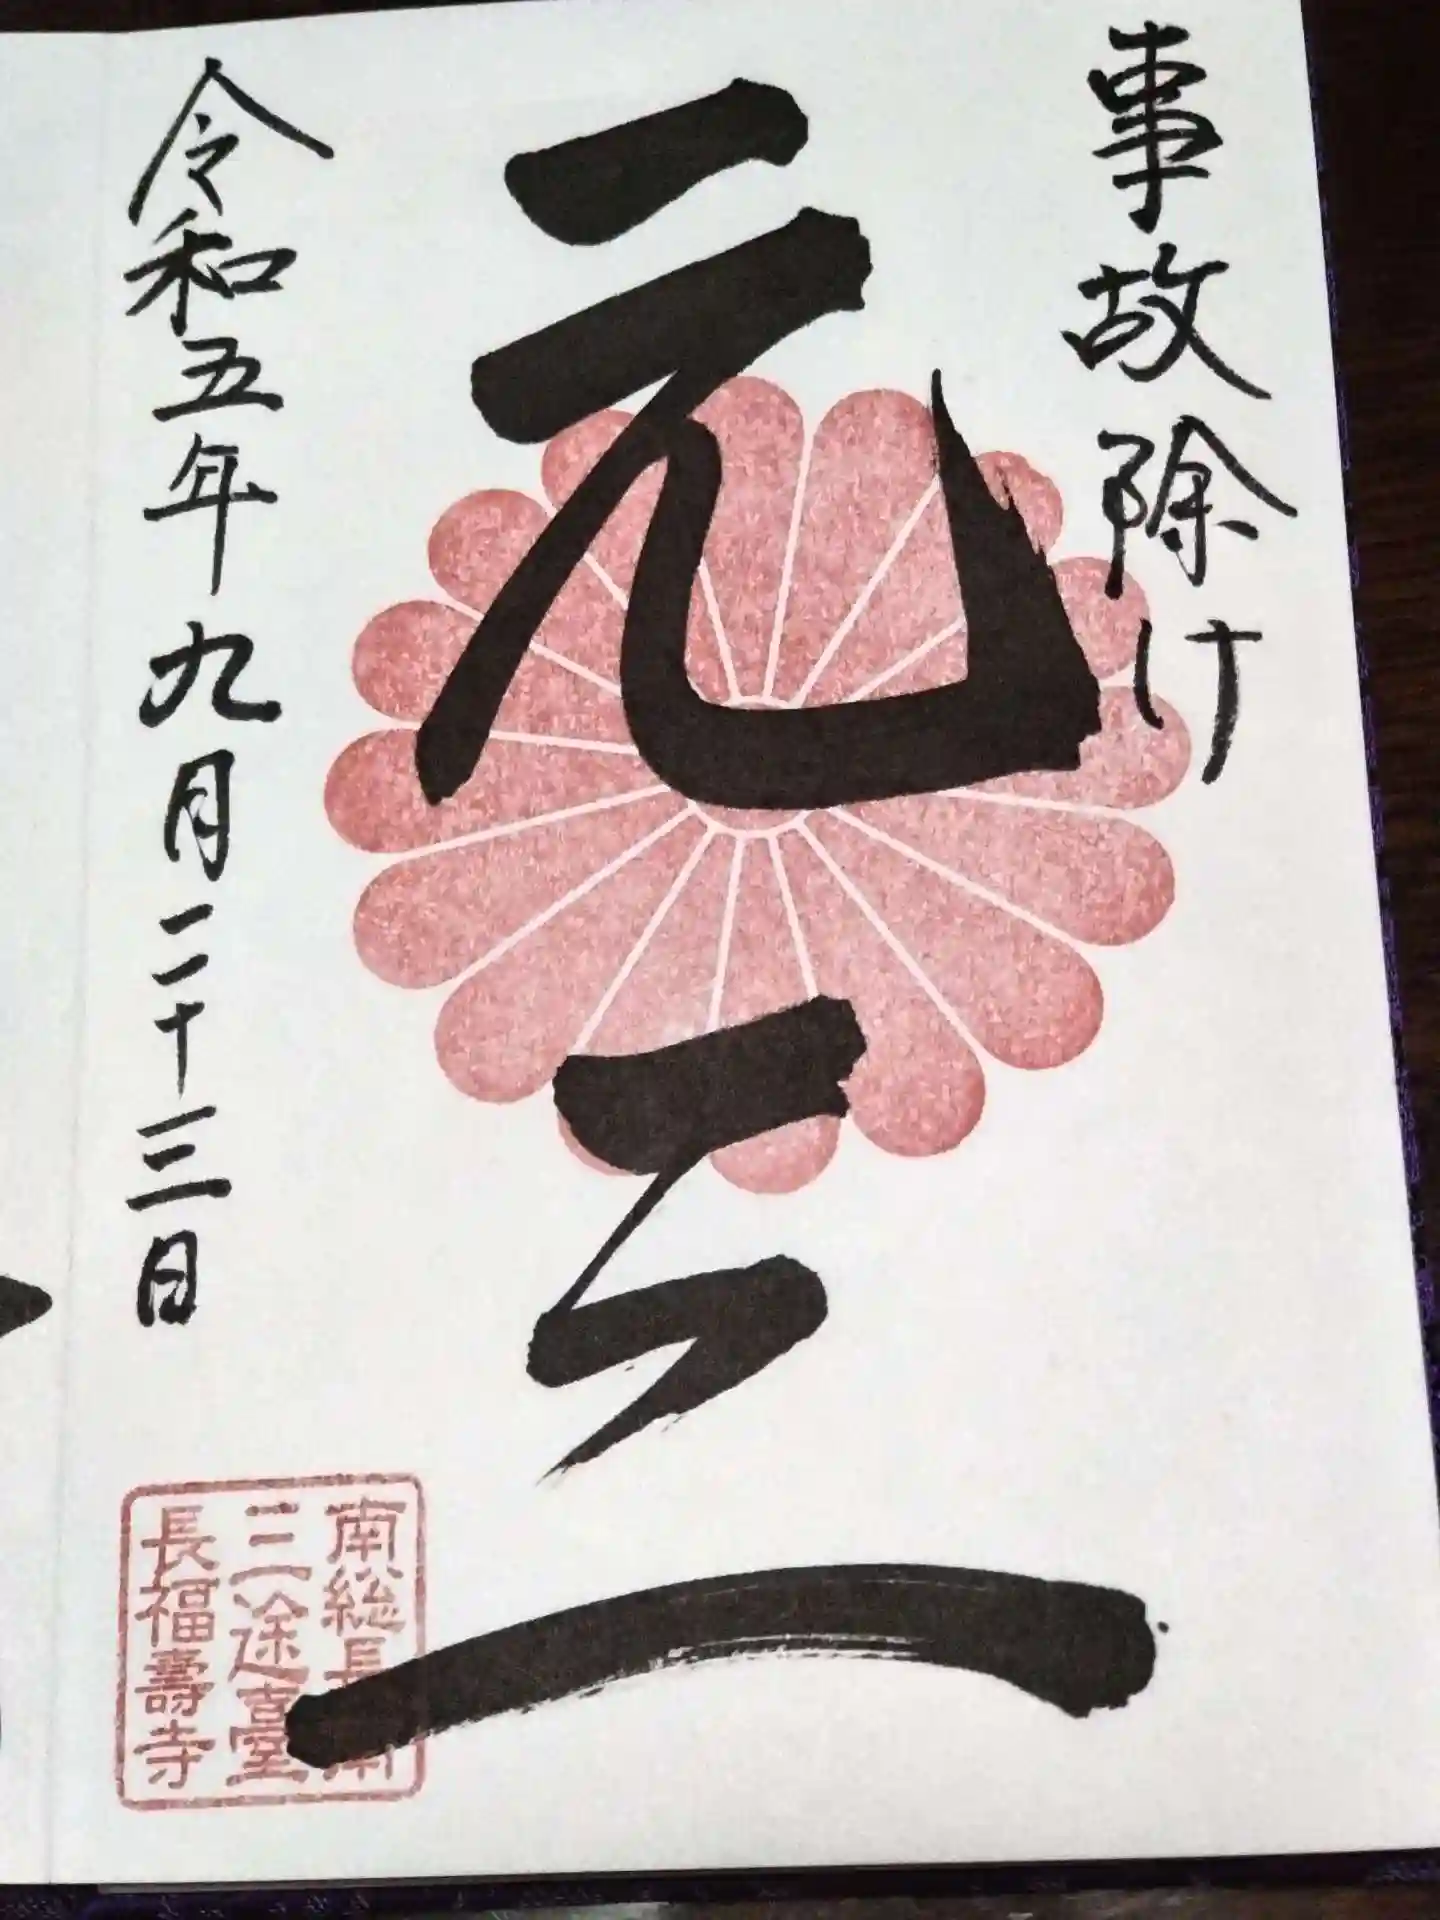 事故除け
元三
令和五年九月二十三日
南総長南
三途臺
長福壽寺